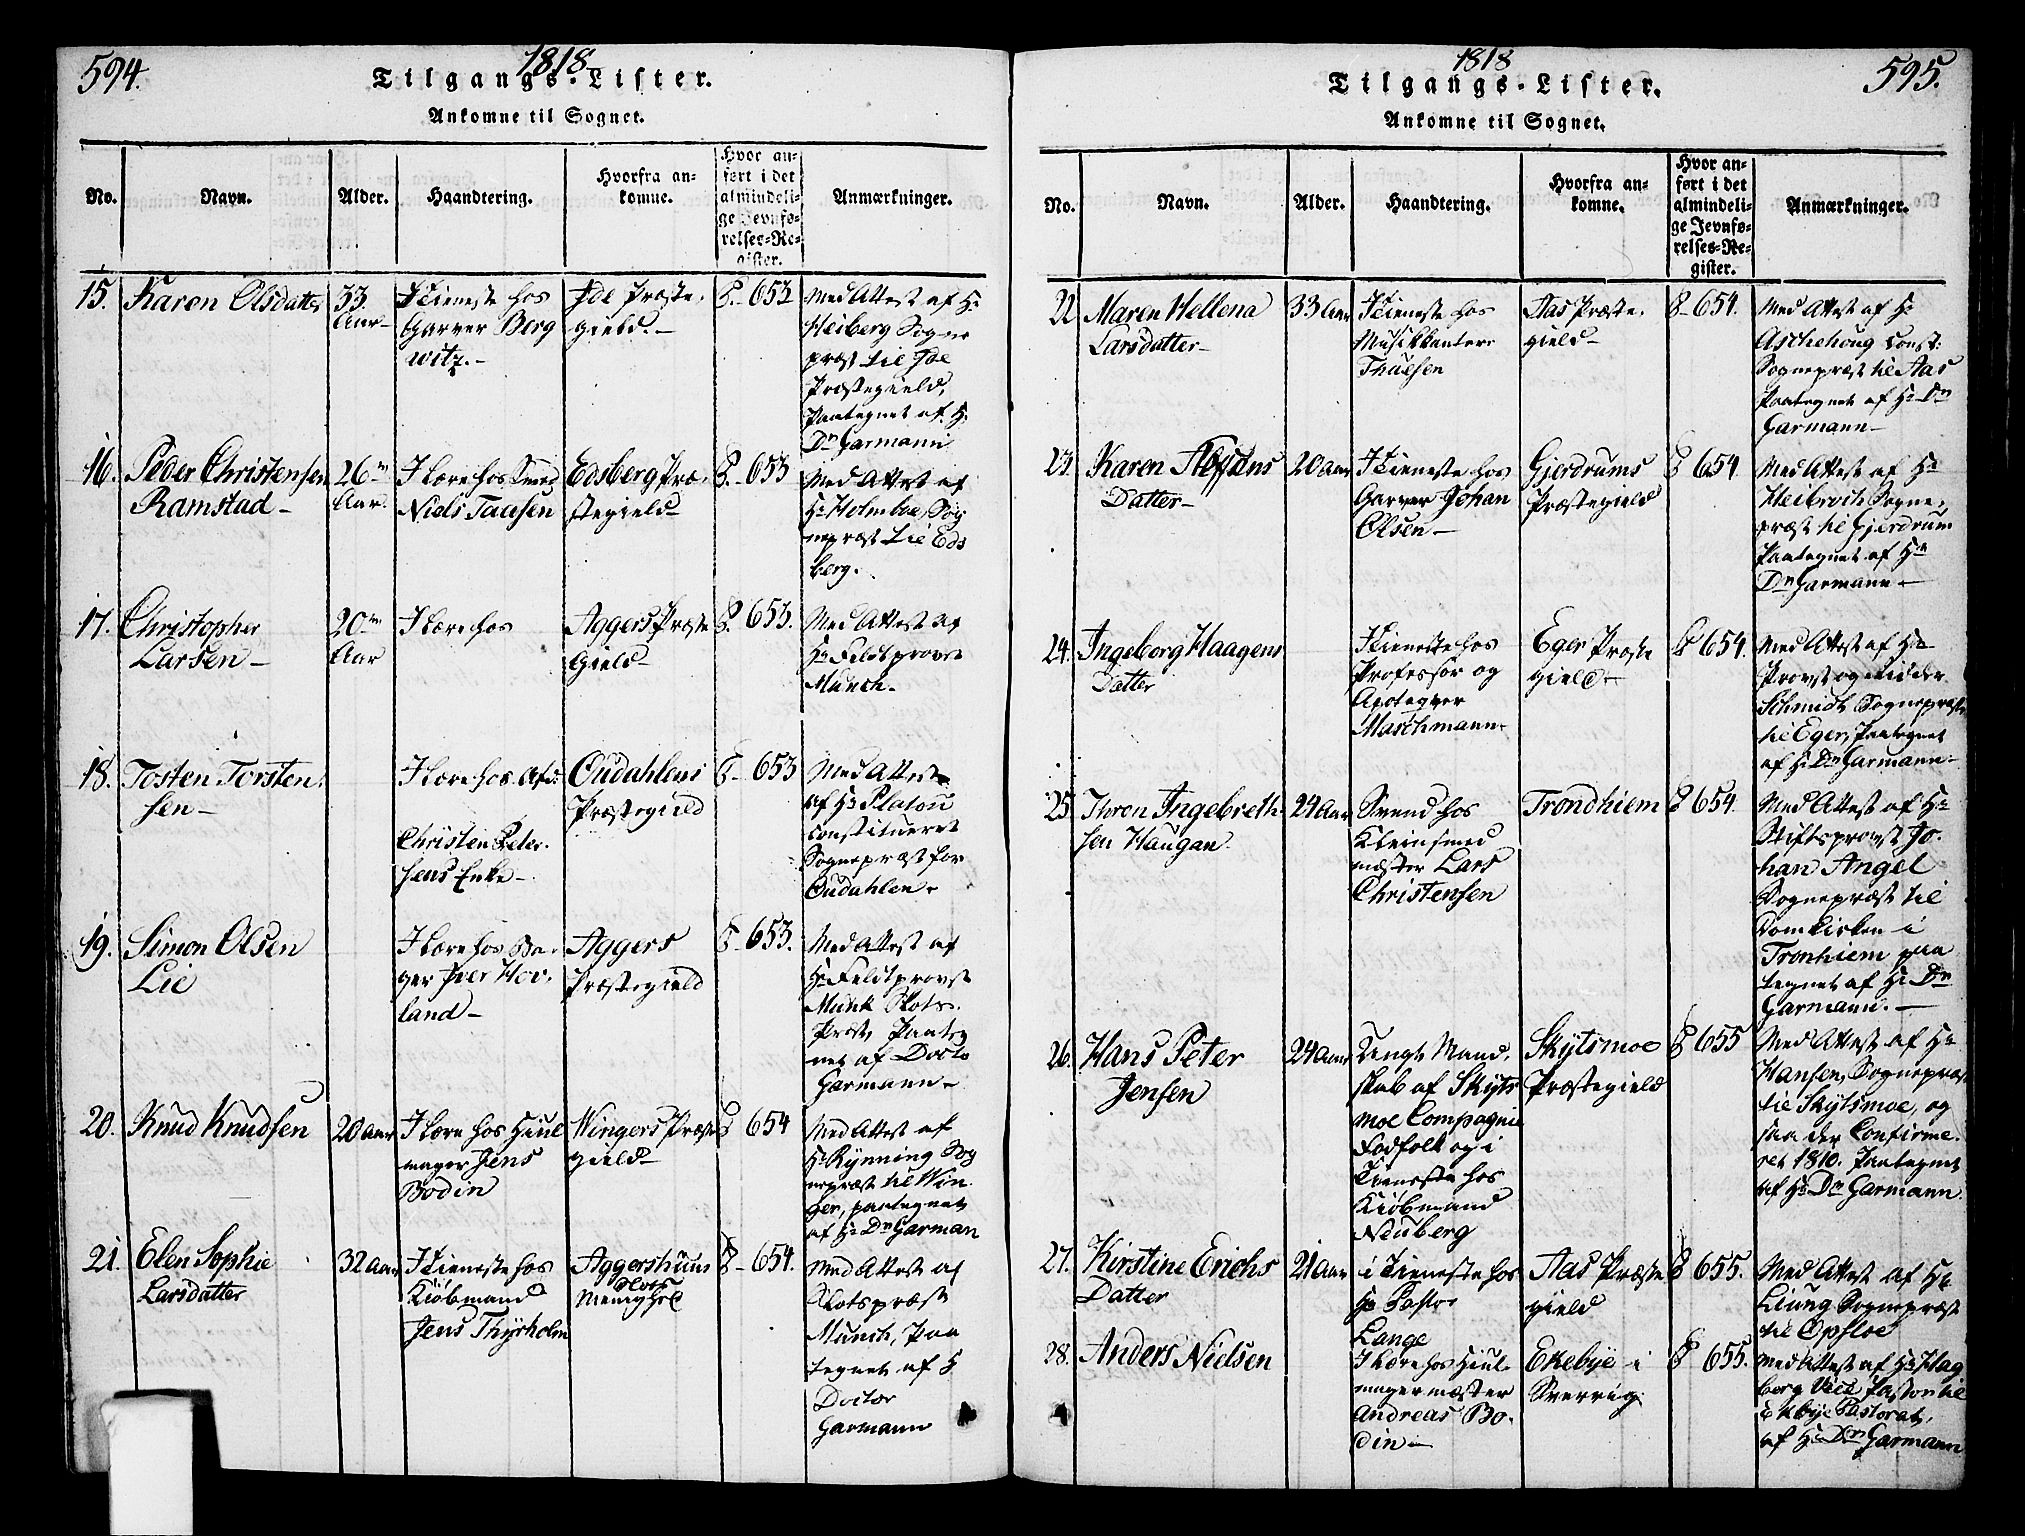 594.
1818
Tilgangs-Lister.
Ankomne til Sognet.
No.
Navn.
Alder.
Haandtering.
Hvorfra an-
komne.
Hvor an-
ført i det
almindeli-
ge Jevnfø-
relses-Re-
gister.
Anmærkninger.
15.
Karen Olsdatter
33
Aar
I Tieneste hos
Garver Berg
witz.
Ide Præste-
gield.
653
Med Attest af Hr
Heiberg Sogne
præst til Ide
Præstegield,
Paategnet af H.
Dr Garmann
16.
Peder Christensen
Ramstad
26
Aar.
I Lære hos Smed
Niels Tausen
Edsberg Præ-
stegield
653
Med Attest af
Hr Holmboe, Sog
nepræst til Eds
berg.
17.
Christopher
Larsen
20
Aar
I Lære hos
Aggers Præste
Gield
653.
Med Attest af
Hr Feldtprovst
Munch.
18.
Tosten Torsten-
sen
I Lære hos Afd:
Christen Peter-
sens Enke
Oudahlens
Præstegield
653
Med Attest
af Hr Platou
constitueret
Sognepræst for
Oudahlen
19.
Simon Olsen
Lie
I Lære hos Ba-
ger Iver Hov-
land
Aggers
Præstegield
653.
Med Attest af
Hr Feldtprovst
Munk Slots-
Præst Paateg
net af Docto
Garmann
20.
Knud Knudsen
20 Aar
I Lære hos Hiul
mager Jens
Bodin
Wingers Præste
gield
654
Med Attest af
Hr Rynning Sog
nepræst til Win
ger, paategnet
af Hr Dr Garman
21.
Elen Sophie
Larsdatter
32 Aar
I Tieneste hos
Kiøbmand
Jens Thyrholm
Aggershuus
Slots
Menighed
654.
Med Attest af
Slotspræst
Munch, Paa
tegnet af H
Doctor
Garmann
595.
1818
Tilgangs-Lister.
Ankomne til Sognet.
No.
Navn.
Alder.
Haandtering.
Hvorfra an-
komne.
Hvor an-
ført i det
almindeli-
ge Jevnfø-
relses-Re-
gister.
Anmærkninger.
22
Maren Hellena
Larsdatter
33 Aar
I Tieneste hos
Musikkanter
Thuesen
Aas Præste-
gield
654.
Med Attest af Hr
Aschehoug Const:
Sognepræst til Aas
Paategnet af Hr Dr
Garmann
23.
Karen
Datter
20 Aar
I Tieneste hos
Garver Johan
Olsen
Gjerdrums
Præstegield
654
Med Attest af Hr
Sogne-
præst til Gjerdrum
Paategnet af Hr
Dr Garmann
24.
Ingeborg Haagens
Datter
I Tieneste hos
Professor og
Apoteger
Maschmann
Eger Præste
gield
654.
Med Attest af Hr
Provst og Ridder
Schmidt Sognepræst
til Eger, Paategnet
af Hr Dr Garmann
25.
Thron Ingebreth-
sen Haugan.
24 Aar
Svend hos
Kleinsmed
mester Lars
Christensen
Trondhiem
654.
Med Attest af Hr
Stiftsprovst Jo-
han Angel
Sognepræst til
Domkirken i
Tronhiem paa
tegnet af Hr Dr
Garmann.
26.
Hans Peter
Jensen
24 Aar
Tengt Mand-
skab af Skyts
moe Compagnie
Fodfolk og i
Tieneste hos
Kiøbmand
Neuberg
Skytsmoe
Præstegield
655
Med Attest af Hr
Hansen, Sognepræst
til Skytsmoe, og
saa der Confirme-
ret 1810. Paategnet
af Hr Dr Garmann
27.
Kirstine Erichs
Datter
21 Aar
i Tieneste hos
Hr Pastor
Lange
Aas Præste
gield
655.
Med Attest af Hr
Liung Sognepræst
til Opsloe
28.
Anders Nielsen
I Lære hos Hiul
mager mester
Andreas Bo-
din
Ekebye i
Sverrig
655.
Med Attest af Hr Hag
berg Vice Pastor til
Ekbye Pastorat,
af Hr Dr Garmann